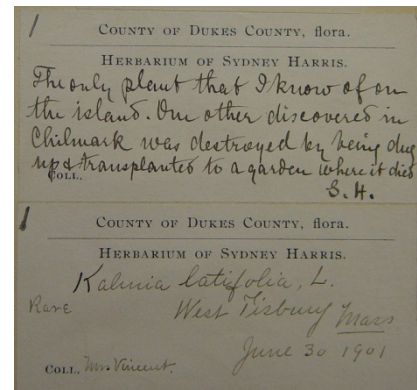 1
COUNTY OF DUKES COUNTY, flora.
HERBARIUM OF SYDNEY HARRIS.
The only plant that I know of on
the island. One other discovered in
Chilmark was destroyed by being dug
up & transplanted to a garden where it died
COLL.
S. H.
1
COUNTY OF DUKES COUNTY, flora.
HERBARIUM OF SYDNEY HARRIS.
Kalmia latifolia, L.
Rare
West Tisbury Mass
June 30 1901
COLL. Mrs Vincent.